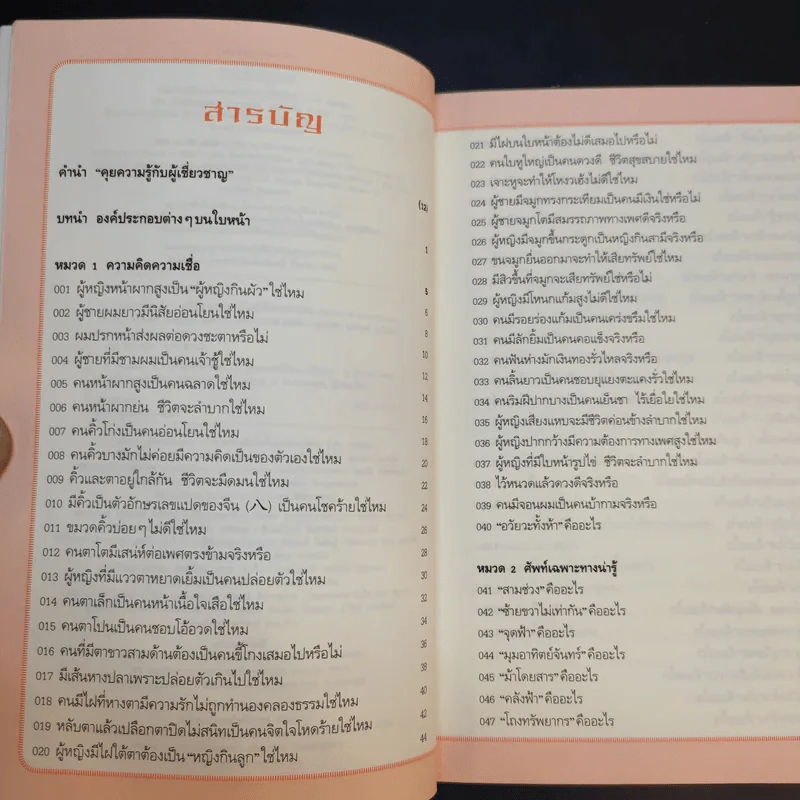 สารบัญ
คำนำ "คุยความรู้กับผู้เชี่ยวชาญ" (12)
บทนำ องค์ประกอบต่างๆ บนใบหน้า 1
หมวด 1 ความคิดความเชื่อ
001 ผู้หญิงหน้าผากสูงเป็น "ผู้หญิงกินผัว" ใช่ไหม 5
002 ผู้ชายผมยาวมีนิสัยอ่อนโยนใช่ไหม 6
003 ผมปรกหน้าส่งผลต่อดวงชะตาหรือไม่ 8
004 ผู้ชายที่มีชามผมเป็นคนเจ้าชู้ใช่ไหม 10
005 คนหน้าผากสูงเป็นคนฉลาดใช่ไหม 12
006 คนหน้าผากย่น ชีวิตจะลำบากใช่ไหม 14
007 คนคิ้วโก่งเป็นคนอ่อนโยนใช่ไหม 16
008 คนคิ้วบางมักไม่ค่อยมีความคิดเป็นของตัวเองใช่ไหม 18
009 คิ้วและตาอยู่ใกล้กัน ชีวิตจะมืดมนใช่ไหม 20
010 มีคิ้วเป็นตัวอักษรเลขแปดของจีน (八) เป็นคนโชคร้ายใช่ไหม 22
011 ขมวดคิ้วบ่อยๆ ไม่ดีใช่ไหม 24
012 คนตาโตมีเสน่ห์ต่อเพศตรงข้ามจริงหรือ 26
013 ผู้หญิงที่มีแววตาหยาดเยิ้มเป็นคนปล่อยตัวใช่ไหม 28
014 คนตาเล็กเป็นคนหน้าเนื้อใจเสือใช่ไหม 30
015 คนตาโปนเป็นคนชอบโอ้อวดใช่ไหม 32
016 คนที่มีตาขาวสามด้านต้องเป็นคนขี้โกงเสมอไปหรือไม่ 34
017 มีเส้นหางปลาเพราะปล่อยตัวเกินไปใช่ไหม 36
018 คนมีไฝที่หางตามีความรักไม่ถูกทำนองคลองธรรมใช่ไหม 38
019 หลับตาแล้วเปลือกตาปิดไม่สนิทเป็นคนจิตใจโหดร้ายใช่ไหม 40
020 ผู้หญิงมีไฝใต้ตาต้องเป็น "หญิงกินลูก" ใช่ไหม 42
44
021 มีไฝบนใบหน้าต้องไม่ดีเสมอไปหรือไม่
022 คนใบหูใหญ่เป็นคนดวงดี ชีวิตสุขสบายใช่ไหม
023 เจาะหูจะทำให้โหงวเฮ้งไม่ดีใช่ไหม
024 ผู้ชายมีจมูกทรงกระเทียมเป็นคนมีเงินใช่หรือไม่
025 ผู้ชายจมูกโตมีสมรรถภาพทางเพศดีจริงหรือ
026 ผู้หญิงมีจมูกขึ้นกระดูกเป็นหญิงกินสามีจริงหรือ
027 ขนจมูกยื่นออกมาจะทำให้เสียทรัพย์ใช่ไหม
028 มีสิวขึ้นที่จมูกจะเสียทรัพย์ใช่หรือไม่
029 ผู้หญิงมีโหนกแก้มสูงไม่ดีใช่ไหม
030 คนมีรอยร่องแก้มเป็นคนเคร่งขรึมใช่ไหม
031 คนมีลักยิ้มเป็นคนคอแข็งจริงหรือ
032 คนฟันห่างมักเงินทองรั่วไหลจริงหรือ
033 คนลิ้นยาวเป็นคนชอบยุแยงตะแคงรั่วใช่ไหม
034 คนริมฝีปากบางเป็นคนเย็นชา ไร้เยื่อใยใช่ไหม
035 ผู้หญิงเสียงแหบจะมีชีวิตค่อนข้างลำบากใช่ไหม
036 ผู้หญิงปากกว้างมีความต้องการทางเพศสูงใช่ไหม
037 ผู้หญิงที่มีใบหน้ารูปไข่ ชีวิตจะลำบากใช่ไหม
038 ไว้หนวดแล้วดวงดีจริงหรือ
039 คนมีจอนผมเป็นคนบ้ากามจริงหรือ
040 "อวัยวะทั้งห้า" คืออะไร
หมวด 2 ศัพท์เฉพาะทางน่ารู้
041 "สามช่วง" คืออะไร
042 "ซ้ายขวาไม่เท่ากัน" คืออะไร
043 "จุดฟ้า" คืออะไร
044 "มุมอาทิตย์จันทร์" คืออะไร
045 "ม้าโดยสาร" คืออะไร
046 "คลังฟ้า" คืออะไร
047 "โถงทรัพยากร" คืออะไร